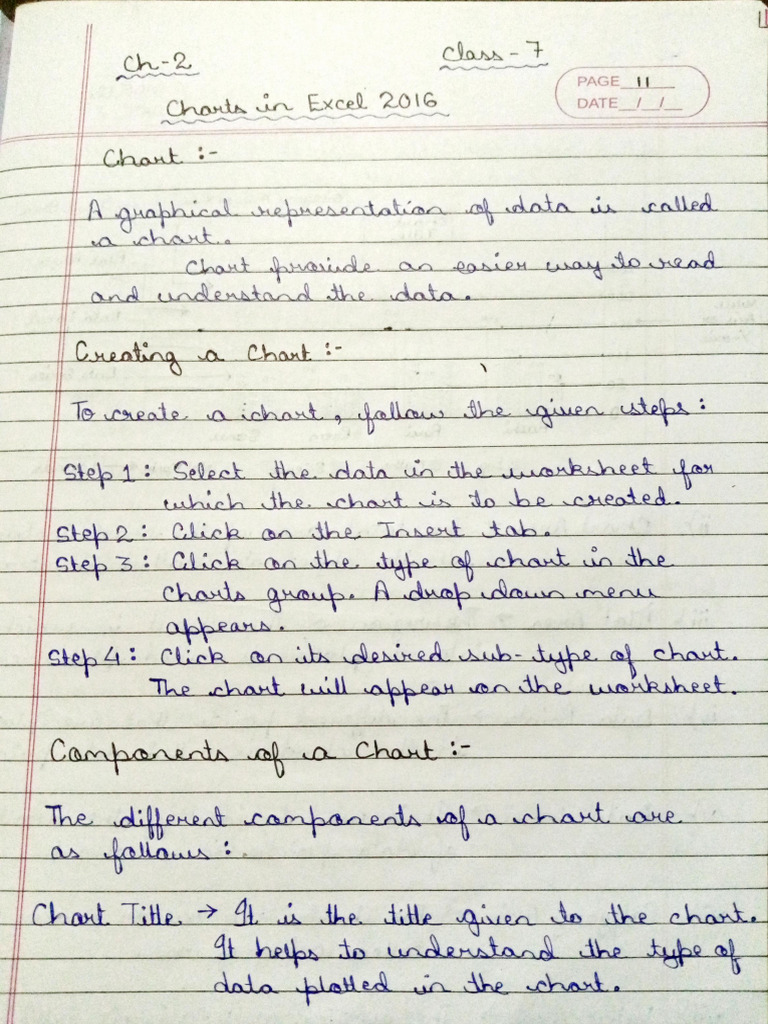 Ch-2
Class - 7
PAGE 11
DATE / /
Charts in Excel 2016
Chart :-
A graphical representation of data is called
a chart.
Chart provide an easier way to read
and understand the data.
Creating a Chart :-
To create a chart, follow the given steps :
Step 1 : Select the data in the worksheet for
which the chart is to be created.
Step 2 : Click on the Insert tab.
Step 3 : Click on the type of chart in the
Charts group. A drop down menu
appears.
Step 4 : Click on its desired sub-type of chart.
The chart will appear on the worksheet.
Components of a Chart :-
The different components of a chart are
as follows :
Chart Title → It is the title given to the chart.
It helps to understand the type of
data plotted in the chart.